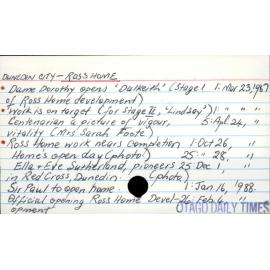 DUNEDIN CITY - ROSS HOME
• Dame Dorothy opens 'Dalkeith' (Stage 1 1: Mar 23, 1987
of Ross Home development)
• Work is on target (for Stage II, 'Lindsay') 1: " " "
Centenarian a picture of vigour, 5: Apl 24, "
vitality (Mrs Sarah Foote)
• Ross Home work nears completion 1: Oct 26, "
Home's open day (photo) 25: " 28, "
Ella & Eve Sutherland, pioneers 25: Dec 1, "
in Red Cross, Dunedin (photo)
Sir Paul to open home. 1: Jan 16, 1988.
Official opening Ross Home Devel- 26: Feb 4, "
opment
OTAGO DAILY TIMES